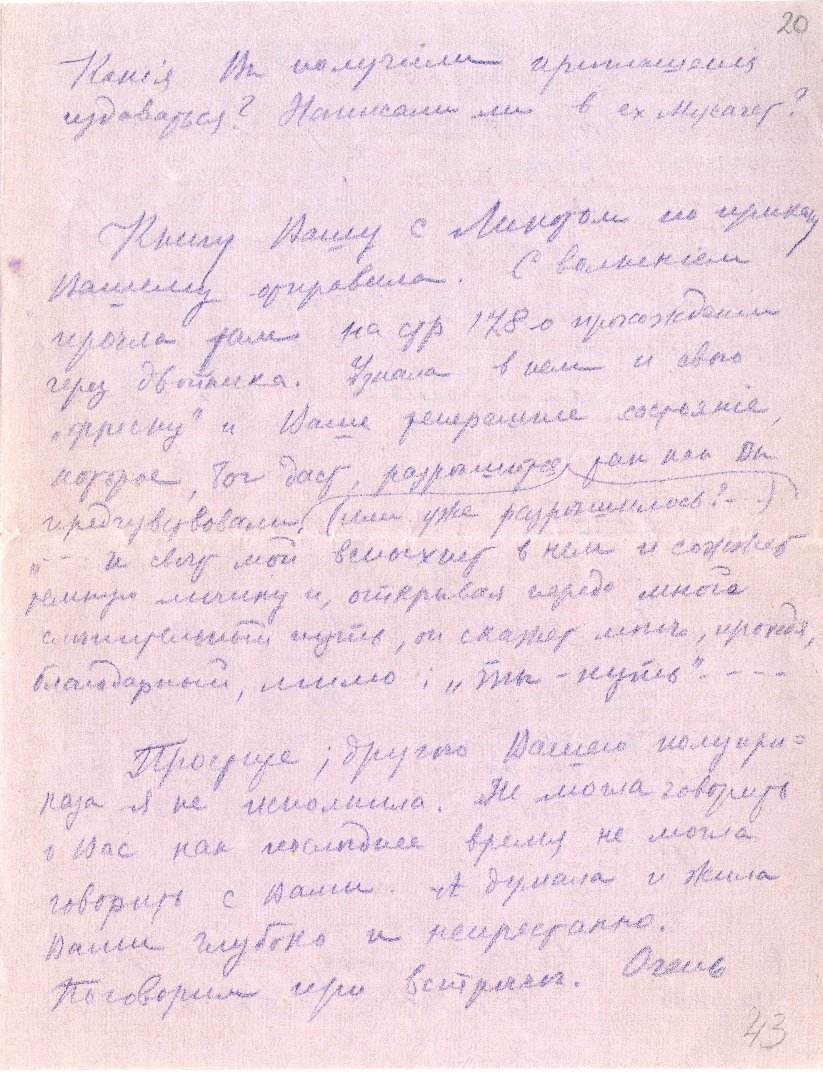 20
Какія Вы получили приглашенія
издаваться? Написали ли в ех Мусагет?
Книгу Вашу с по приказу
Вашему отправила. С волненіем
прочла там на стр 178 о прохождении
через двойника. Узнала в нем и свою
„фреску" и Ваше теперешнее состояніе,
которое, Бог даст, разрѣшится, так как Вы
предчувствовали, (или уже разрѣшилось? - - -)
„ - - - и свѣт мой вспыхнет в нем и сожжет
темную личину и, открывая передо мною
путь, он скажет мнѣ, проходя,
благодарный, мимо: „ты - путь" - - - -
Простите; другого Вашего полупри=
каза я не исполнила. Не могла говорить
о Вас как последнее время не могла
говорить с Вами. А думала и жила
Вами глубоко и непрестанно.
Поговорим при встрѣчѣ. Очень
43